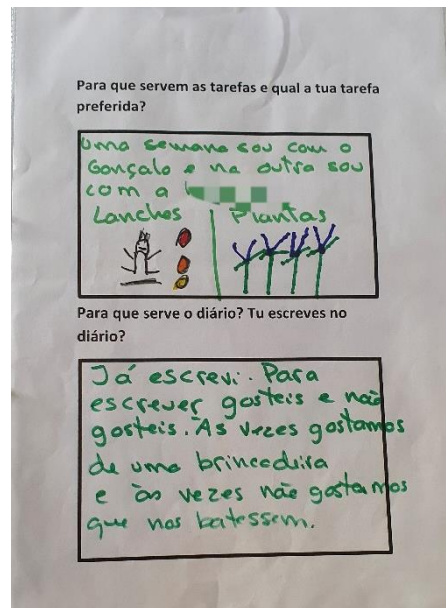 Para que servem as tarefas e qual a tua tarefa
preferida?
Uma semana sou com o
Gonçalo e na outra sou
com a
Lanches Plantas
Para que serve o diário? Tu escreves no
diário?
Já escrevi. Para
escrever gosteis e não
gosteis. As vezes gostamos
de uma brincadeira
e às vezes não gostamos
que nos batessem.